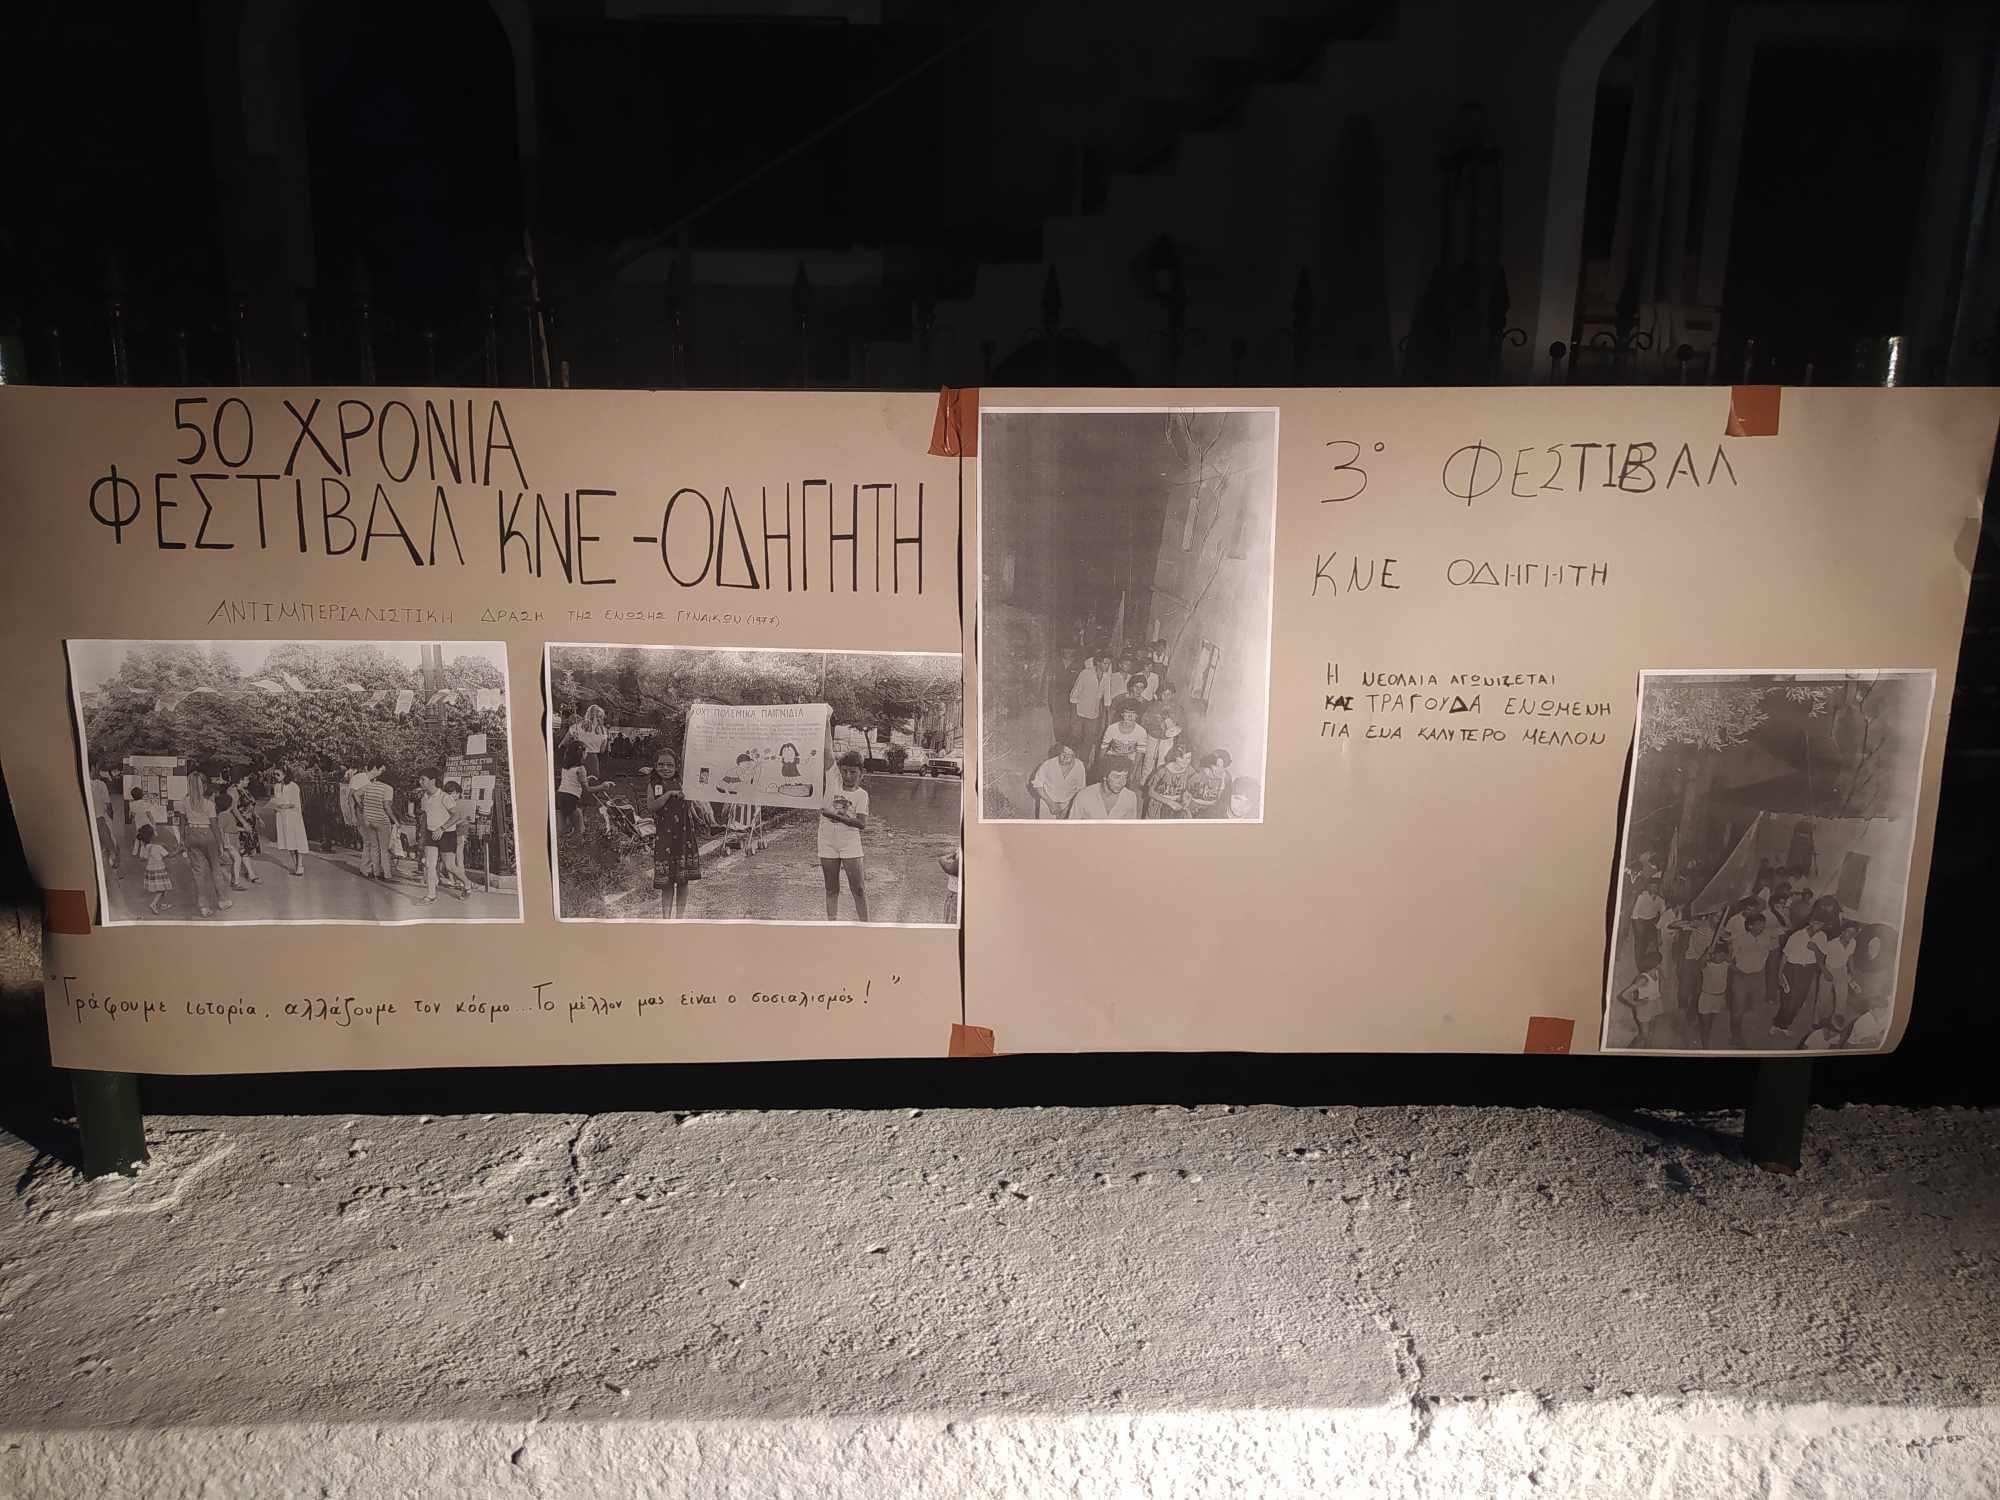 50 ΧΡΟΝΙΑ
ΦΕΣΤΙΒΑΛ ΚΝΕ-ΟΔΗΓΗΤΗ
ΑΝΤΙΜΠΕΡΙΑΛΙΣΤΙΚΗ ΔΡΑΣΗ ΤΗΣ ΕΝΩΣΗΣ ΓΥΝΑΙΚΩΝ (1977)
ΟΧΙ ΠΟΛΕΜΙΚΑ ΠΑΙΓΝΙΔΙΑ
"Γράφουμε ιστορία, αλλάζουμε τον κόσμο...Το μέλλον μας είναι ο σοσιαλισμός!"
3° ΦΕΣΤΙΒΑΛ
ΚΝΕ ΟΔΗΓΗΤΗ
Η ΝΕΟΛΑΙΑ ΑΓΩΝΙΖΕΤΑΙ
ΚΑΙ ΤΡΑΓΟΥΔΑ ΕΝΩΜΕΝΗ
ΓΙΑ ΕΝΑ ΚΑΛΥΤΕΡΟ ΜΕΛΛΟΝ